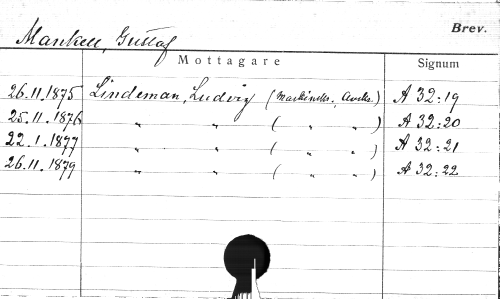 Brev.
Mankell, Gustaf
Mottagare Signum
26.11.1875 Lindeman, Ludvig ( ) A 32:19
25.11.1876 " " ( " " ) A 32:20
22.1.1877 " " ( " " ) A 32:21
26.11.1879 " " ( " " ) A 32:22